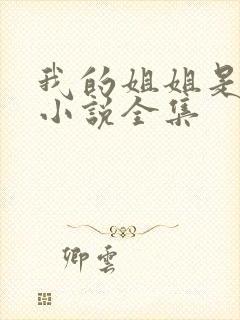 我的姐姐是
小说全集
卿云